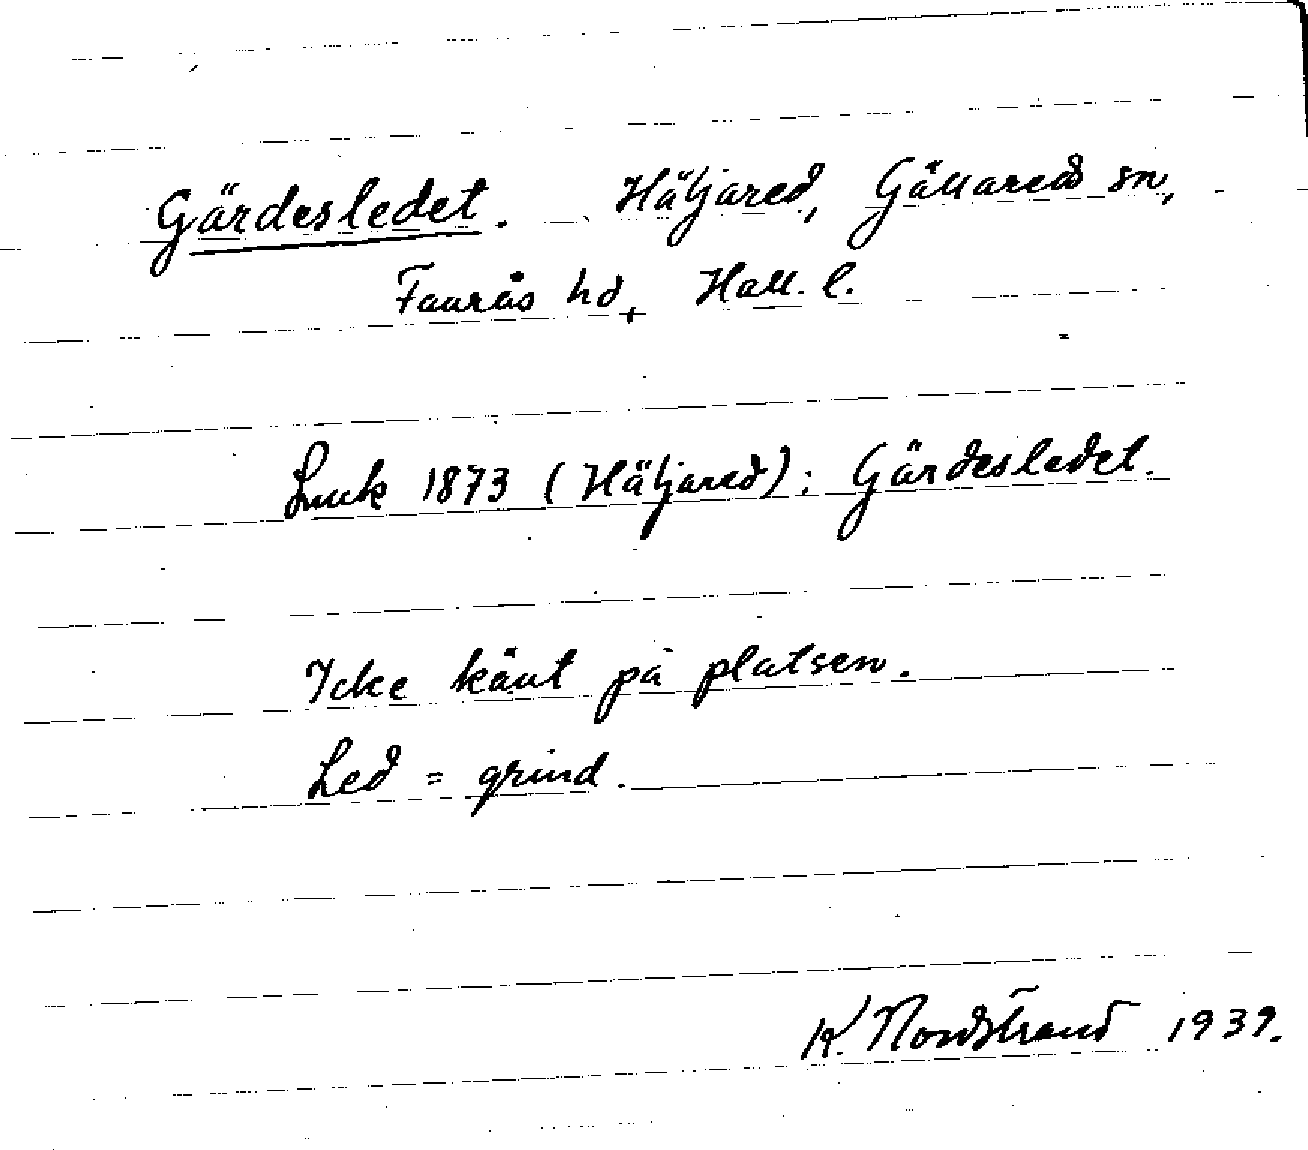 Gärdesledet. Häljared, Gällareds sn,
Faurås hd, Hall. l.
Lmk 1873 (Häljared): Gärdesledet.
Icke känt på platsen.
Led = grind.
K. Nordstrand 1939.